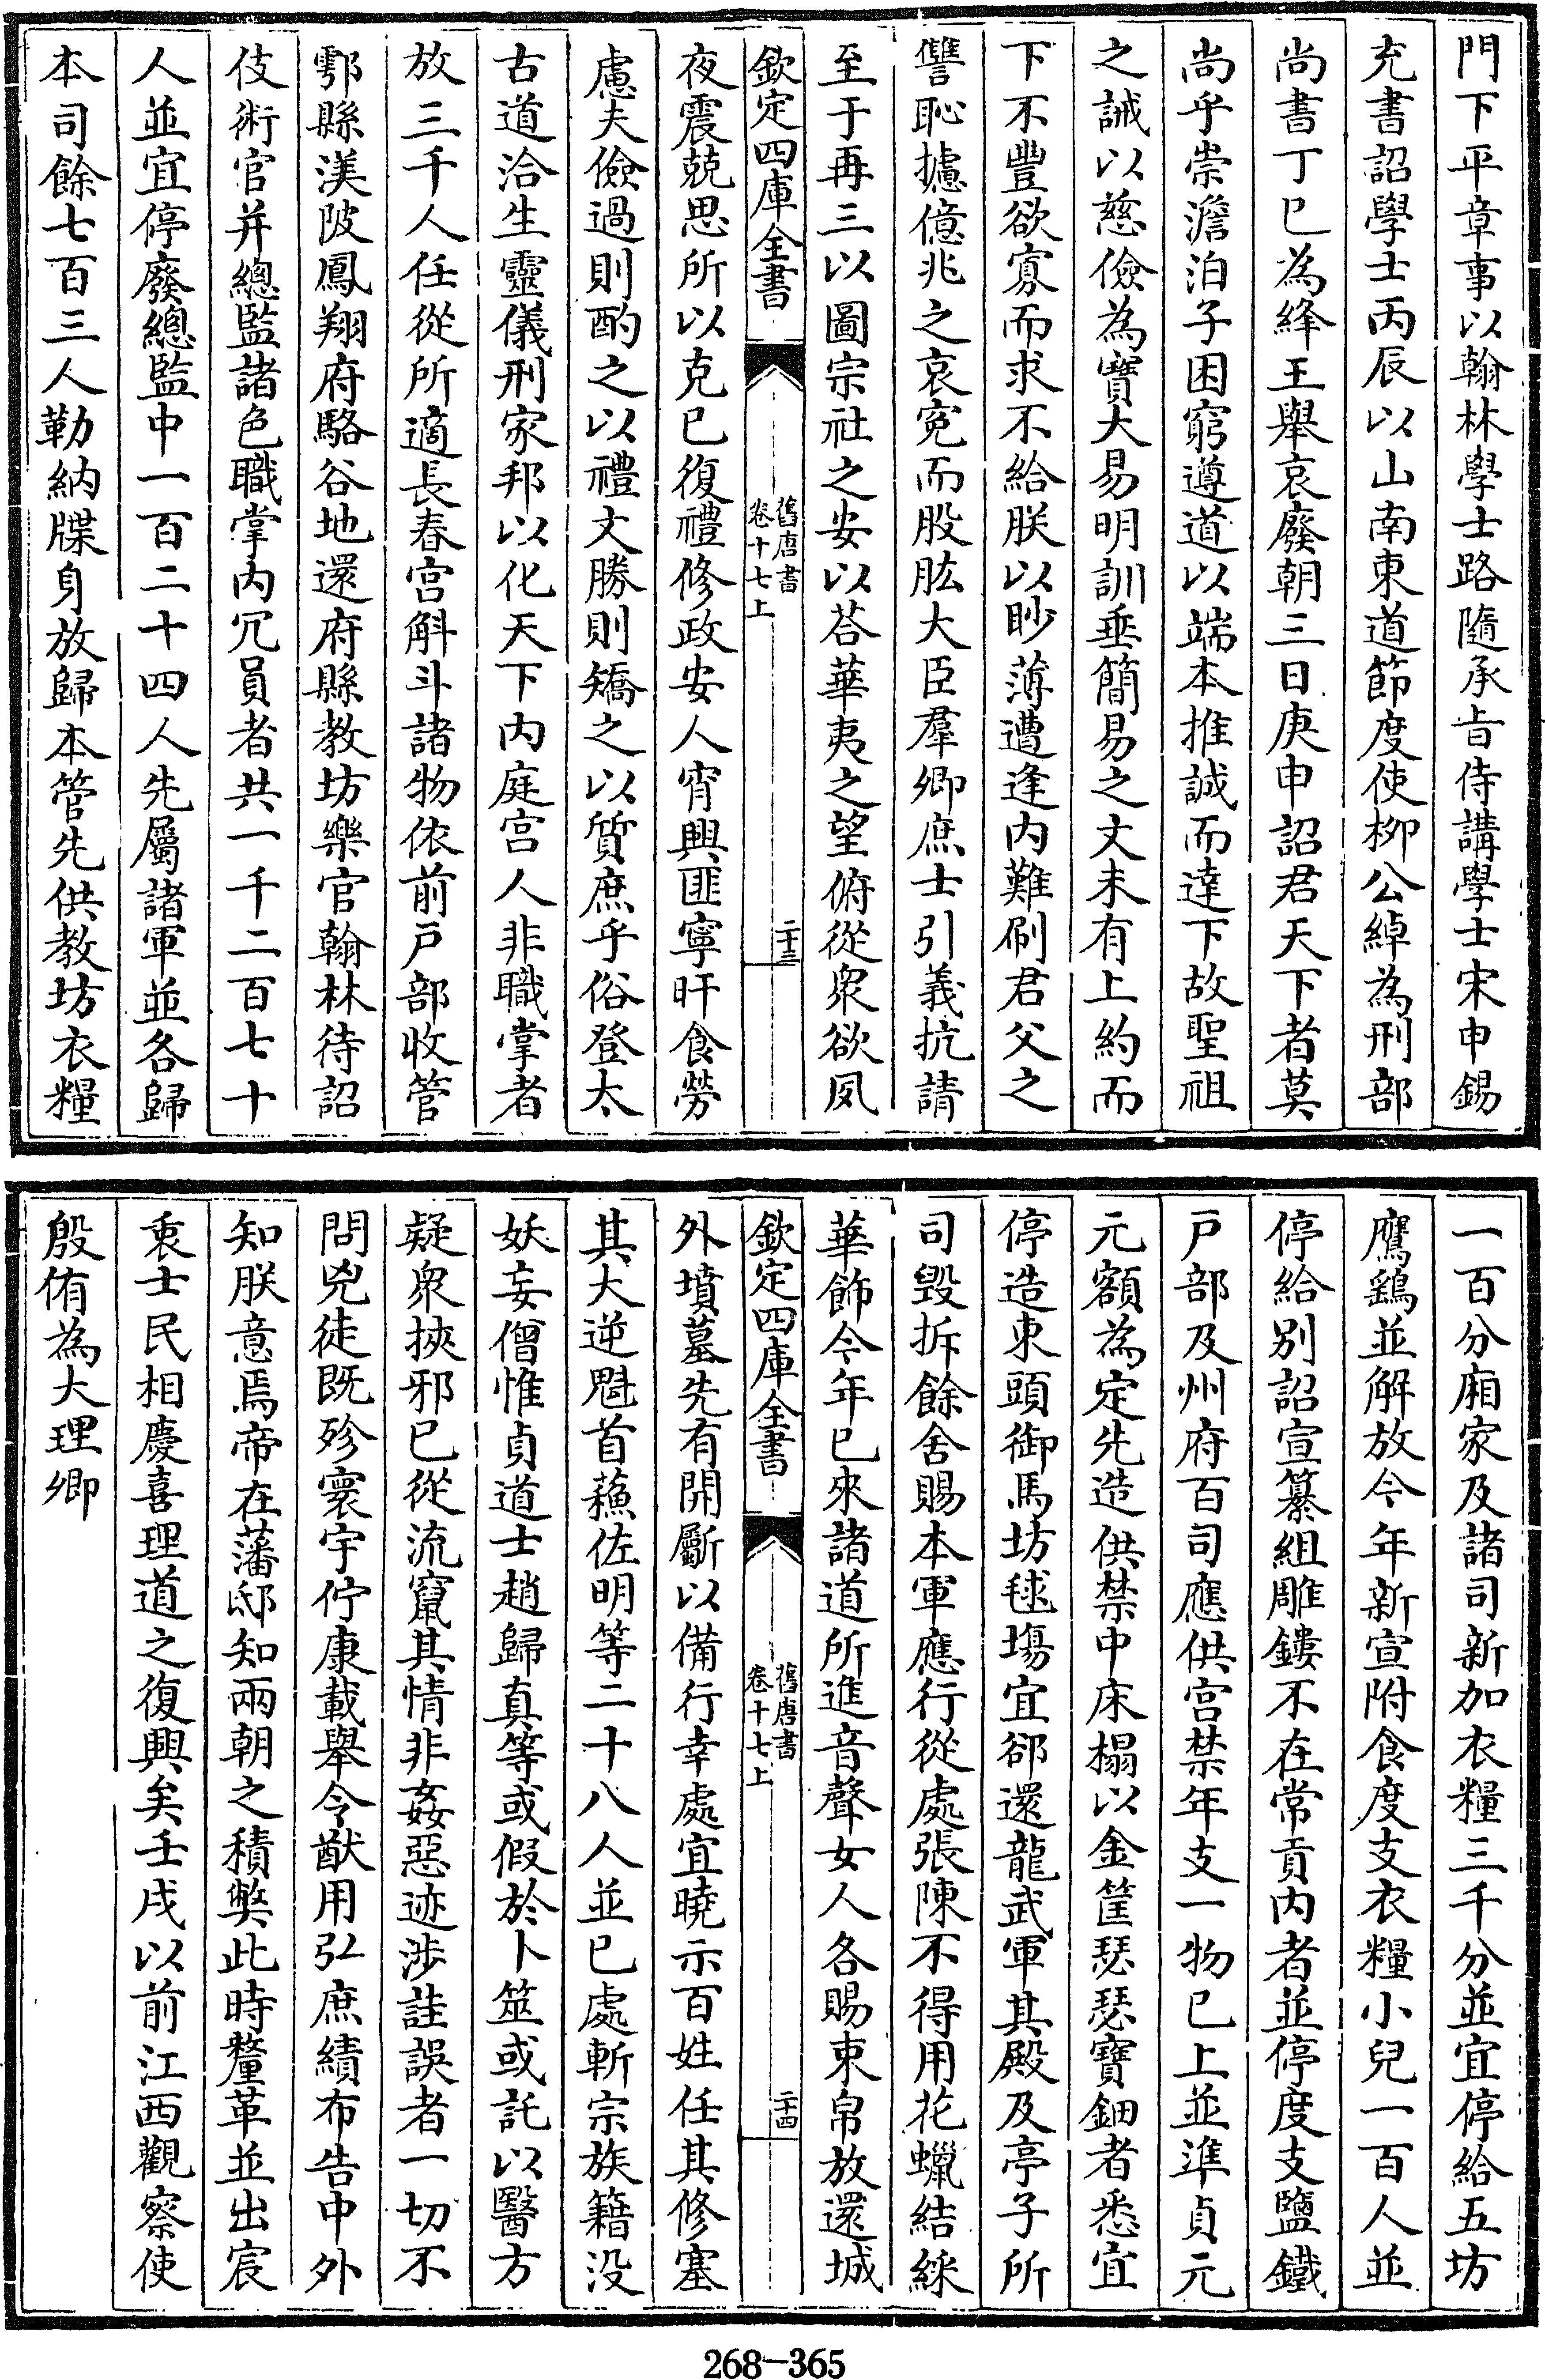 門下平章事以翰林學士路隨承㫖侍講學士宋申錫
充書詔學士丙辰以山南東道節度使栁公綽為刑部
尚書丁巳為絳王舉哀廢朝三日庚申詔君天下者莫
尚乎崇澹泊子困窮遵道以端本推誠而達下故聖祖
之誡以慈儉為寳大易明訓垂簡易之文未有上約而
下不豐欲寡而求不給朕以眇薄遭逢内難刷君父之
讐恥攄億兆之哀寃而股肱大臣羣卿庶士引義抗請
至于再三以圖宗社之安以荅華夷之望俯從衆欲夙
欽定四庫全書
舊唐書
卷十七上
二十三
夜震兢思所以克已復禮修政安人宵興匪寧旰食勞
慮夫儉過則酌之以禮文勝則矯之以質庶乎俗登太
古道洽生靈儀刑家邦以化天下内庭宫人非職掌者
放三千人任從所適長春宫斛斗諸物依前户部收管
鄠縣渼陂鳳翔府駱谷地還府縣教坊樂官翰林待詔
伎術官并總監諸色職掌内冗員者共一千二百七十
人並宜停廢總監中一百二十四人先屬諸軍並各歸
本司餘七百三人勒納牒身放歸本管先供教坊衣糧
一百分廂家及諸司新加衣糧三千分並宜停給五坊
鷹鷂並解放今年新宣附食度支衣糧小兒一百人並
停給别詔宣纂組雕鏤不在常貢内者並停度支鹽鐵
户部及州府百司應供宫禁年支一物已上並準貞元
元額為定先造供禁中床榻以金筐瑟瑟寳鈿者悉宜
停造東頭御馬坊毬塲宜郤還龍武軍其殿及亭子所
司毁拆餘舍賜本軍應行從處張陳不得用花蠟結綵
華飾今年已來諸道所進音聲女人各賜束帛放還城
欽定四庫全書
舊唐書
卷十七上
二十四
外墳墓先有開斸以備行幸處宜曉示百姓任其修塞
其大逆魁首蘓佐明等二十八人並已處斬宗族籍没
妖妄僧惟貞道士趙歸真等或假於卜筮或託以醫方
疑衆挾邪已從流竄其情非姦惡迹涉詿誤者一切不
問兇徒既殄寰宇佇康載舉令猷用弘庶績布告中外
知朕意焉帝在藩邸知兩朝之積弊此時釐革並出宸
衷士民相慶喜理道之復興矣壬戌以前江西觀察使
殷侑為大理卿
268-365